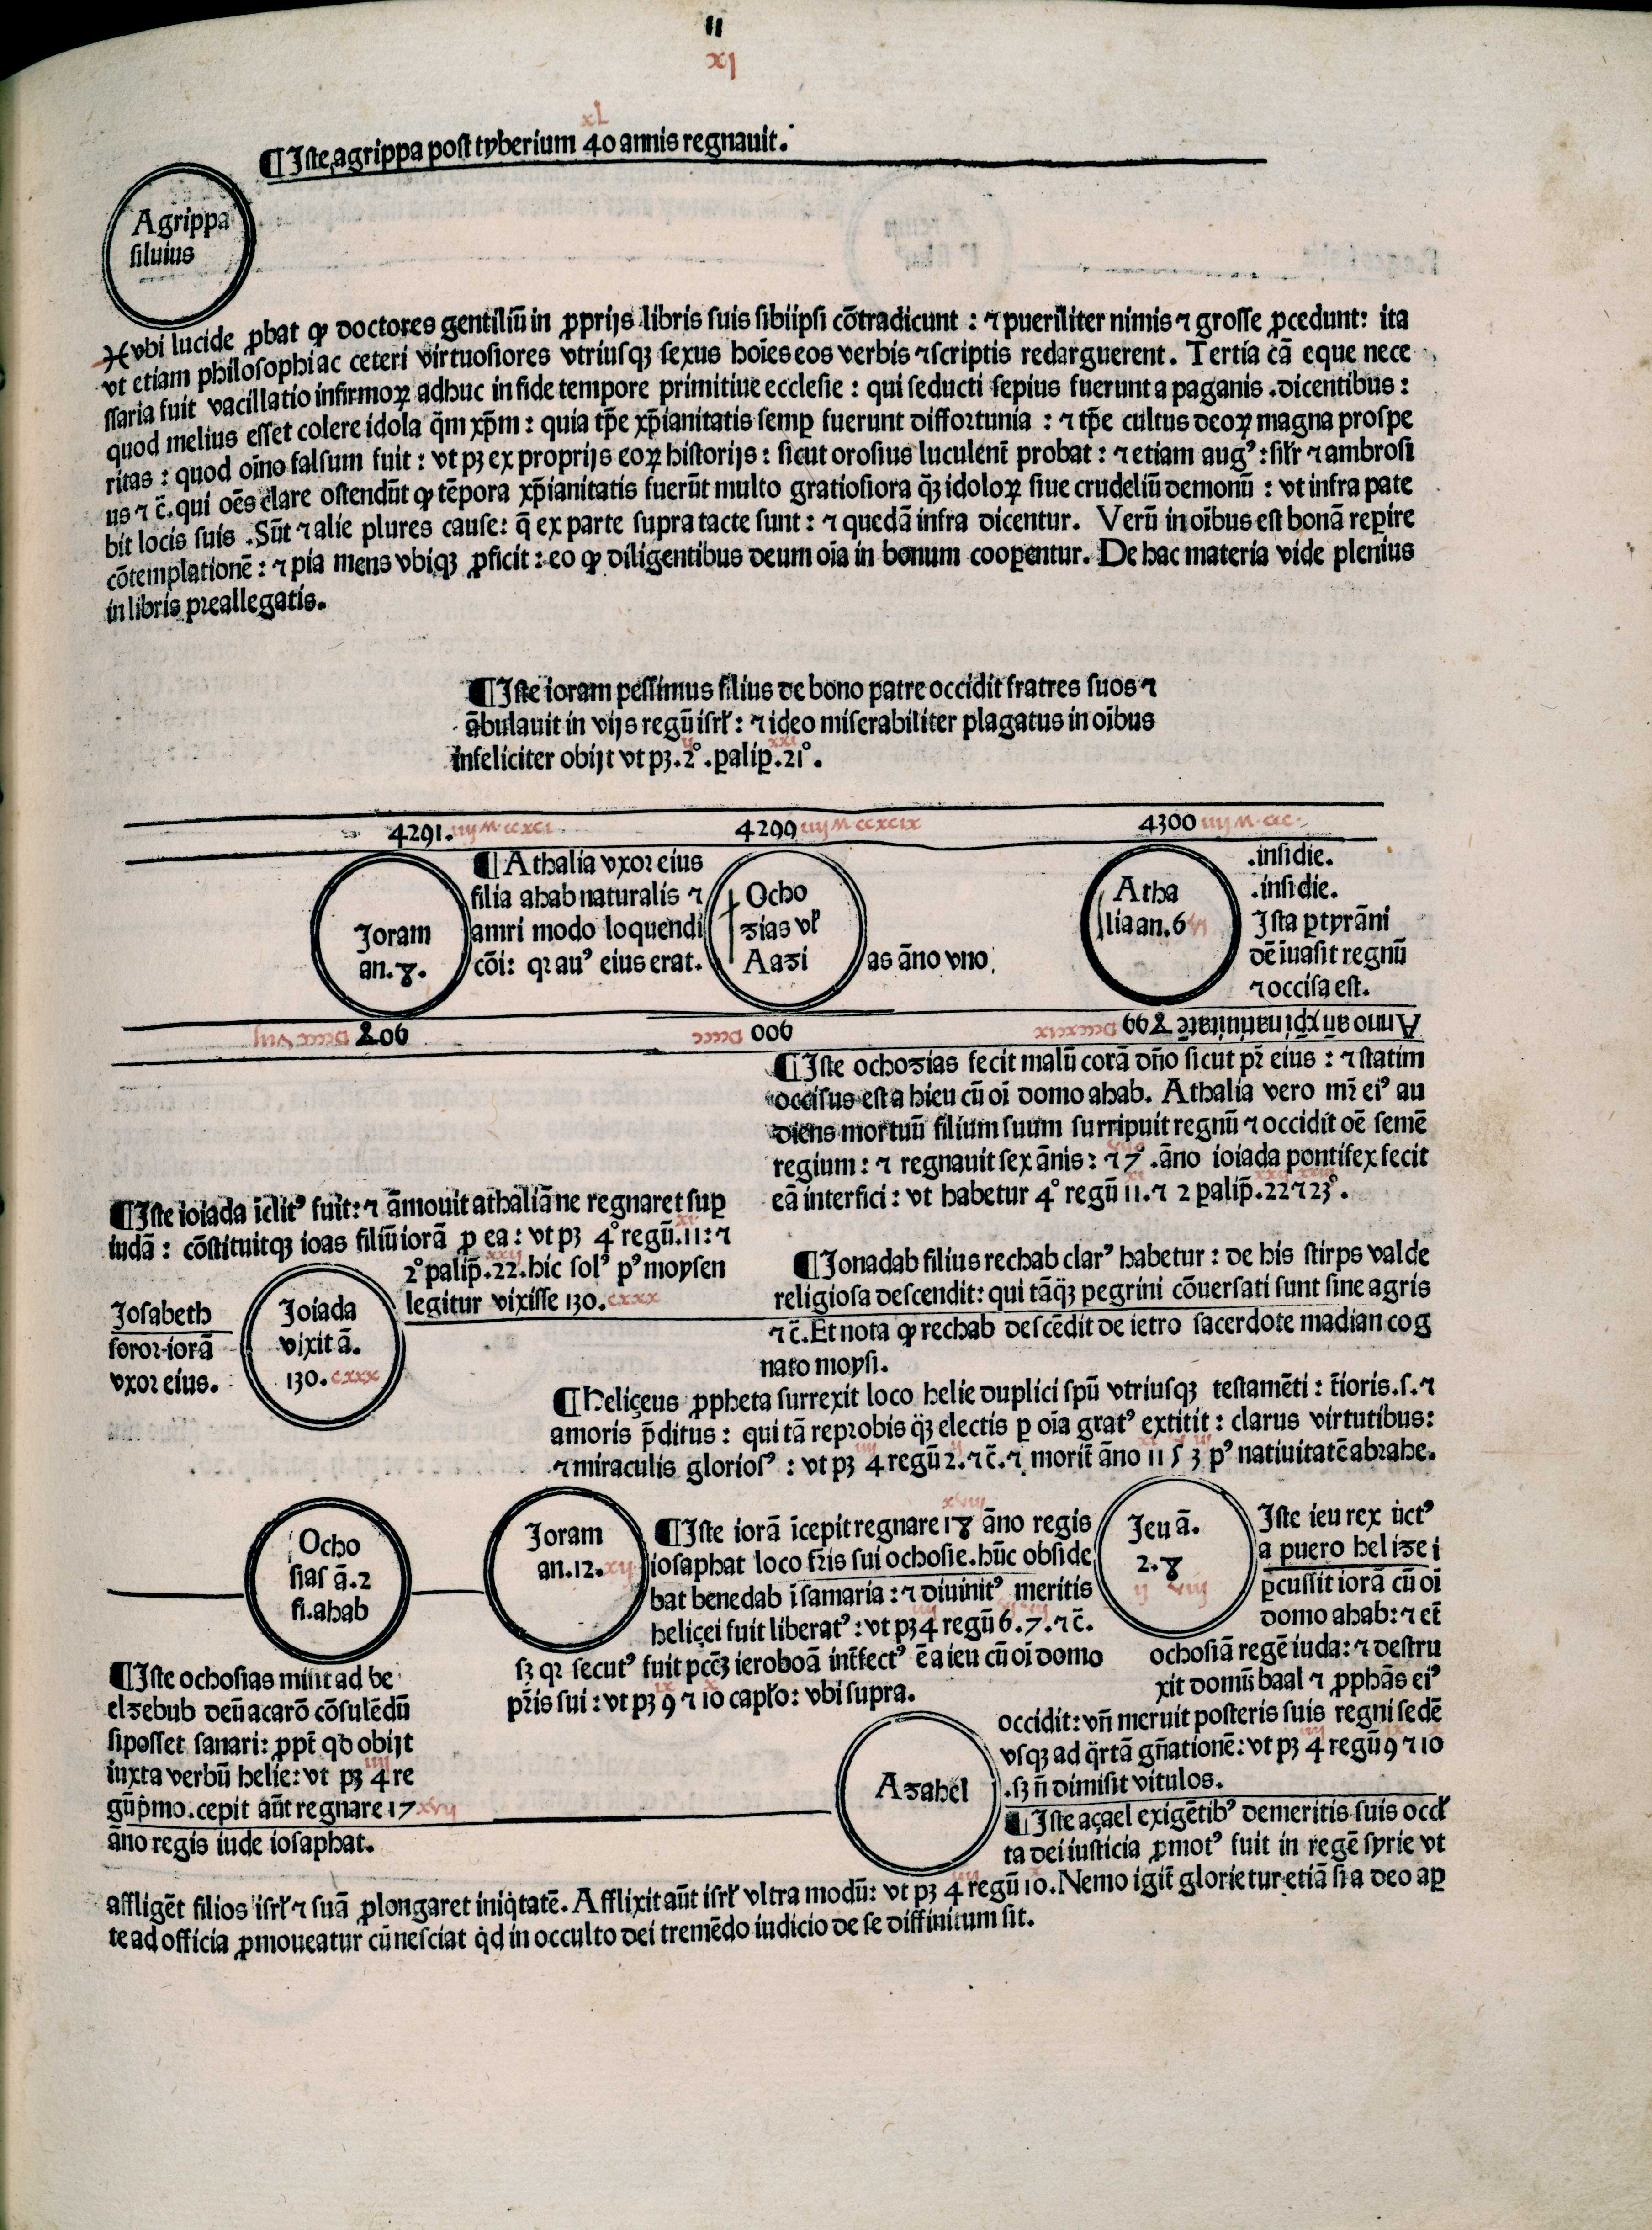 11
xj
xl
¶Iste agrippa post tyberium 40 annis regnauit.
Agrippa
siluius
vbi lucide ꝓbat ꝙ doctores gentiliū in ꝓprijs libris suis sibiipsi cōtradicunt : ⁊ pueriliter nimis ⁊ grosse ꝓcedunt: ita
vt etiam philosophi ac ceteri virtuosiores vtriusqꝫ sexus hoīes eos verbis ⁊ scriptis redarguerent. Tertia cā eque nece
ssaria fuit vacillatio infirmoꝝ adhuc in fide tempore primitiue ecclesie : qui seducti sepius fuerunt a paganis .dicentibus :
quod melius esset colere idola q̄m xp̄m : quia tp̄e xp̄ianitatis semꝑ fuerunt diffortunia : ⁊ tp̄e cultus deoꝝ magna prospe
ritas : quod oīno falsum fuit : vt pꝫ ex proprijs eoꝝ historijs : sicut orosius luculent̄ probat : ⁊ etiam augꝰ : silr̄ ⁊ ambrosi
us ⁊ c̄. qui oēs clare ostendūt ꝙ tēpora xp̄ianitatis fuerūt multo gratiosiora q̄ꝫ idoloꝝ siue crudeliū demonū : vt infra pate
bit locis suis .Sūt ⁊ alie plures cause: q̄ ex parte supra tacte sunt : ⁊ quedā infra dicentur. Verū in oībus est bonā reꝑire
cōtemplationē : ⁊ pia mens vbiqꝫ ꝓficit : eo ꝙ diligentibus deum oīa in bonum cooꝑentur. De hac materia vide plenius
in libris preallegatis.
¶Iste ioram pessimus filius de bono patre occidit fratres suos ⁊
ābulauit in vijs regū isrl̄ : ⁊ ideo miserabiliter plagatus in oībus
infeliciter obijt vt pꝫ.2°.ꝑaliꝑ.21°.
4291. iiij M ccxci
4299 iiij M ccxcix
4300 iiij M ccc
Joram
an.8.
¶Athalia vxor eius
filia ahab naturalis ⁊
amri modo loquendi
cōi: qꝛ auꝰ eius erat.
Ocho
zias vl̄
Aazi
as āno vno
Atha
lia an.6 vj
.insidie.
.insidie.
Ista ꝑ tyrāni
dē iuasit regnū
⁊ occisa est.
Anno an̄ xp̄i natiuitatē 899 dcccxcix
900 dcccc
908 dccccviij
¶Iste ochozias fecit malū corā dn̄o sicut pr̄ eius : ⁊ statim
occisus est a hieu cū oī domo ahab. Athalia vero mr̄ eiꝰ au
diens mortuū filium suum surripuit regnū ⁊ occidit oē semē
regium : ⁊ regnauit sex ānis : ⁊ 7°.āno ioiada pontifex fecit
eā interfici : vt habetur 4° regū 11.⁊ 2 ꝑaliꝑ.22 ⁊ 23°.
¶Iste ioiada īclitꝰ fuit: ⁊ āmouit athaliā ne regnaret suꝑ
iudā : cōstituitqꝫ ioas filiū iorā ꝓ ea : vt pꝫ 4° regū.11: ⁊
2° ꝑaliꝑ.22.hic solꝰ pꝰ moysen
legitur vixisse 130. cxxx
Josabeth
soror iorā
vxor eius.
Joiada
vixit ā.
130. cxxx
¶Jonadab filius rechab clarꝰ habetur : de his stirps valde
religiosa descendit: qui tāq̄ꝫ ꝑegrini cōuersati sunt sine agris
⁊ c̄. Et nota ꝙ rechab descēdit de ietro sacerdote madian cog
nato moysi.
¶Heliçeus ꝓpheta surrexit loco helie duplici spū vtriusqꝫ testamēti : t̄ioris.s.⁊
amoris p̄ditus : qui tā reprobis q̄ꝫ electis ꝑ oīa gratꝰ extitit : clarus virtutibus:
⁊ miraculis gloriosꝰ : vt pꝫ 4 regū 2.⁊ c̄.⁊ morit̄ āno 1153 pꝰ natiuitatē abrahe.
Ocho
sias ā.2
fi.ahab
Joram
an.12. xij
xviij
¶Iste iorā īcepit regnare 18 āno regis
iosaphat loco fr̄is sui ochosie.hūc obside
bat benedab ī samaria : ⁊ diuinitꝰ meritis
heliçei fuit liberatꝰ : vt pꝫ 4 regū 6.7.⁊ c̄.
sꝫ qꝛ secutꝰ fuit pcc̄ꝫ ieroboā int̄fectꝰ ē a ieu cū oī domo
pr̄is sui : vt pꝫ 9 ⁊ 10 capl̄o: vbi supra.
Jeu ā.
2.8
ij viij
Iste ieu rex ūctꝰ
a puero helizei
ꝑcussit iorā cū oī
domo ahab: ⁊ et̄
ochosiā regē iuda: ⁊ destru
xit domū baal ⁊ ꝓphās eiꝰ
occidit: vn̄ meruit posteris suis regni sedē
vsqꝫ ad q̄rtā gn̄ationē: vt pꝫ 4 regū 9 ⁊ 10
.sꝫ n̄ dimisit vitulos.
¶Iste ochosias misit ad be
elzebub deū acarō cōsulēdū
si posset sanari: ꝓpt̄ qd̄ obijt
iuxta verbū helie: vt pꝫ 4 re
gū p̄mo.cepit aūt regnare 17 xvij
āno regis iude iosaphat.
Azahel
¶Iste açael exigētibꝰ demeritis suis occl̄
ta dei iusticia ꝓmotꝰ fuit in regē syrie vt
affligēt filios isrl̄ ⁊ suā ꝓlongaret iniq̄tatē. Afflixit aūt isrl̄ vltra modū: vt pꝫ 4 regū 10. Nemo igit̄ glorietur etiā si a deo aꝑ
te ad officia ꝓmoueatur cū nesciat q̄d in occulto dei tremēdo iudicio de se diffinitum sit.